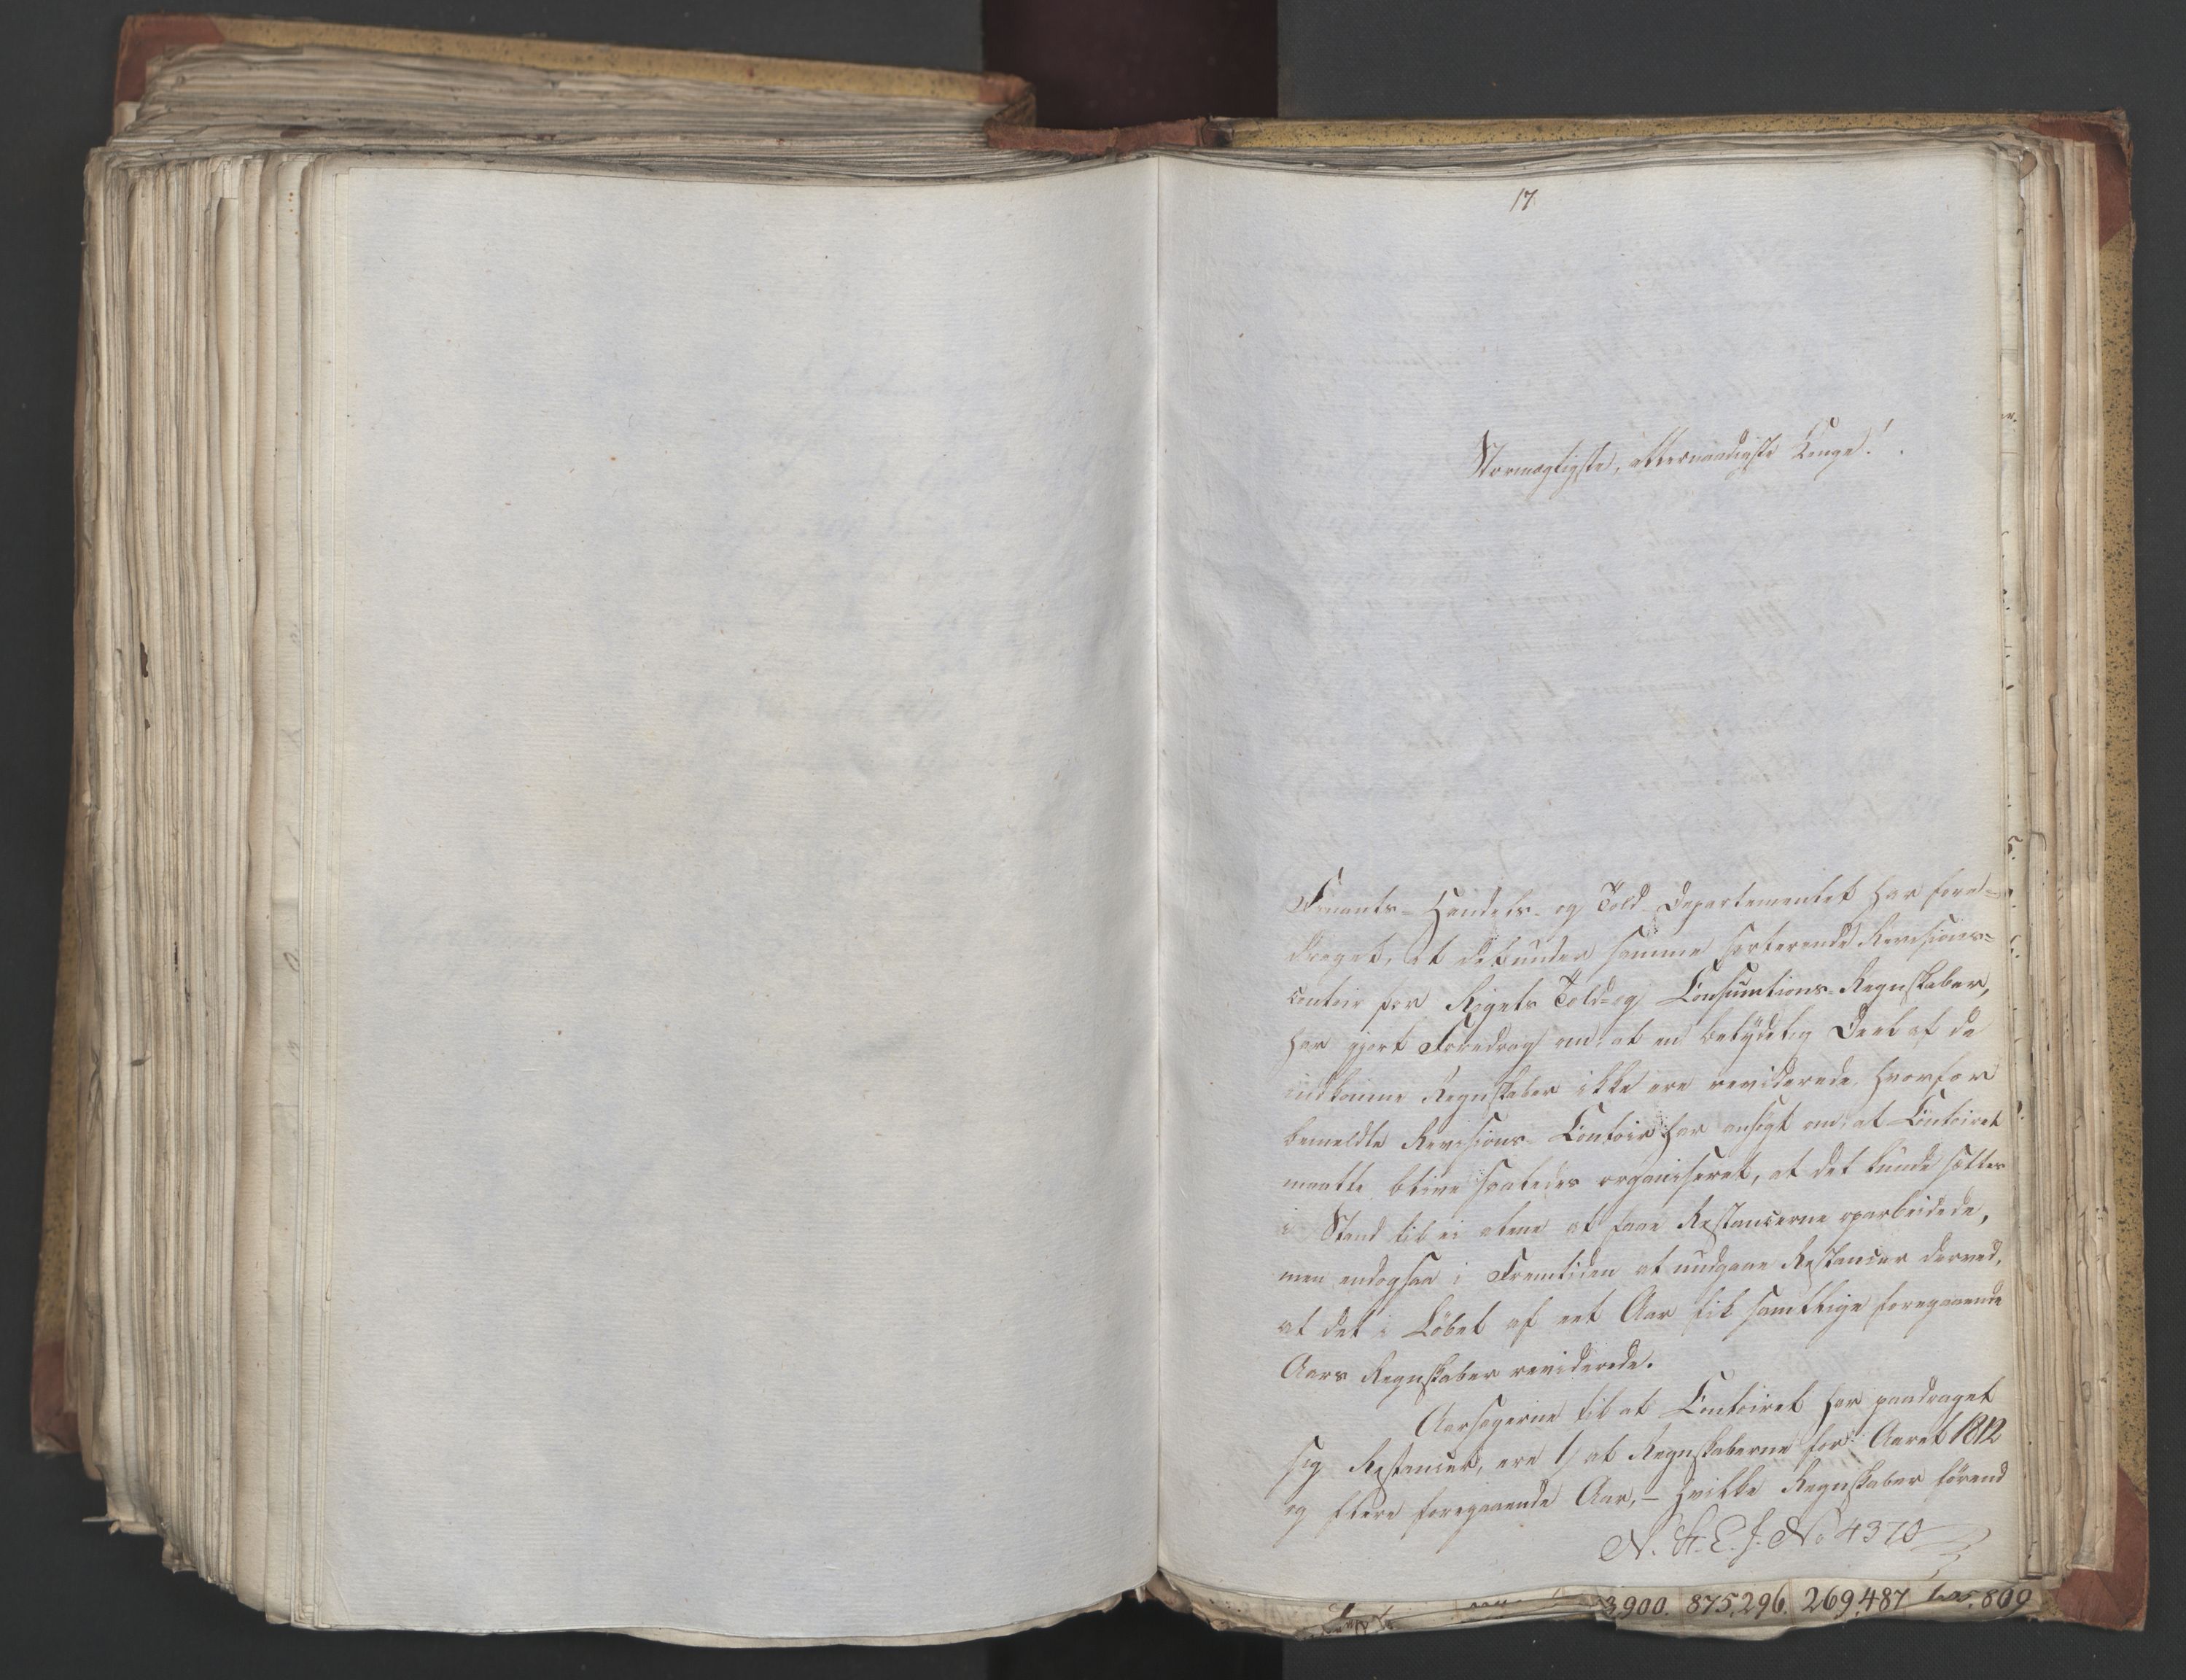 17
Stormægtigste, allernaadigste Konge!
Finants- Handels- og Told-Departementet har fore-
draget, at det under samme sorterende Revisions-
contoir for Rigets Told- og Consumtions-Regnskaber,
har gjort Foredrag om, at en betydelig Deel af de
indkomne Regnskaber ikke ere reviderede, hvorfor
bemeldte Revisions-Contoir har ansøgt om, at Contoiret
maatte blive saaledes organiseret, at det kunde sættes
i Stand til ei alene at faae Restancerne oparbeidede,
men endogsaa i Fremtiden at undgaae Restancer derved,
at det i Løbet af eet Aar fik samtlige foregaaende
Aars Regnskaber reviderede.
Aarsagerne til at Contoiret har paadraget
sig Restancer, ere 1/ at Regnskaberne for Aaret 1812
og flere foregaaende Aar, - hvilke Regnskaber förend
N. St. E. J. No 4370
3,900. 875,296. 269,487 809